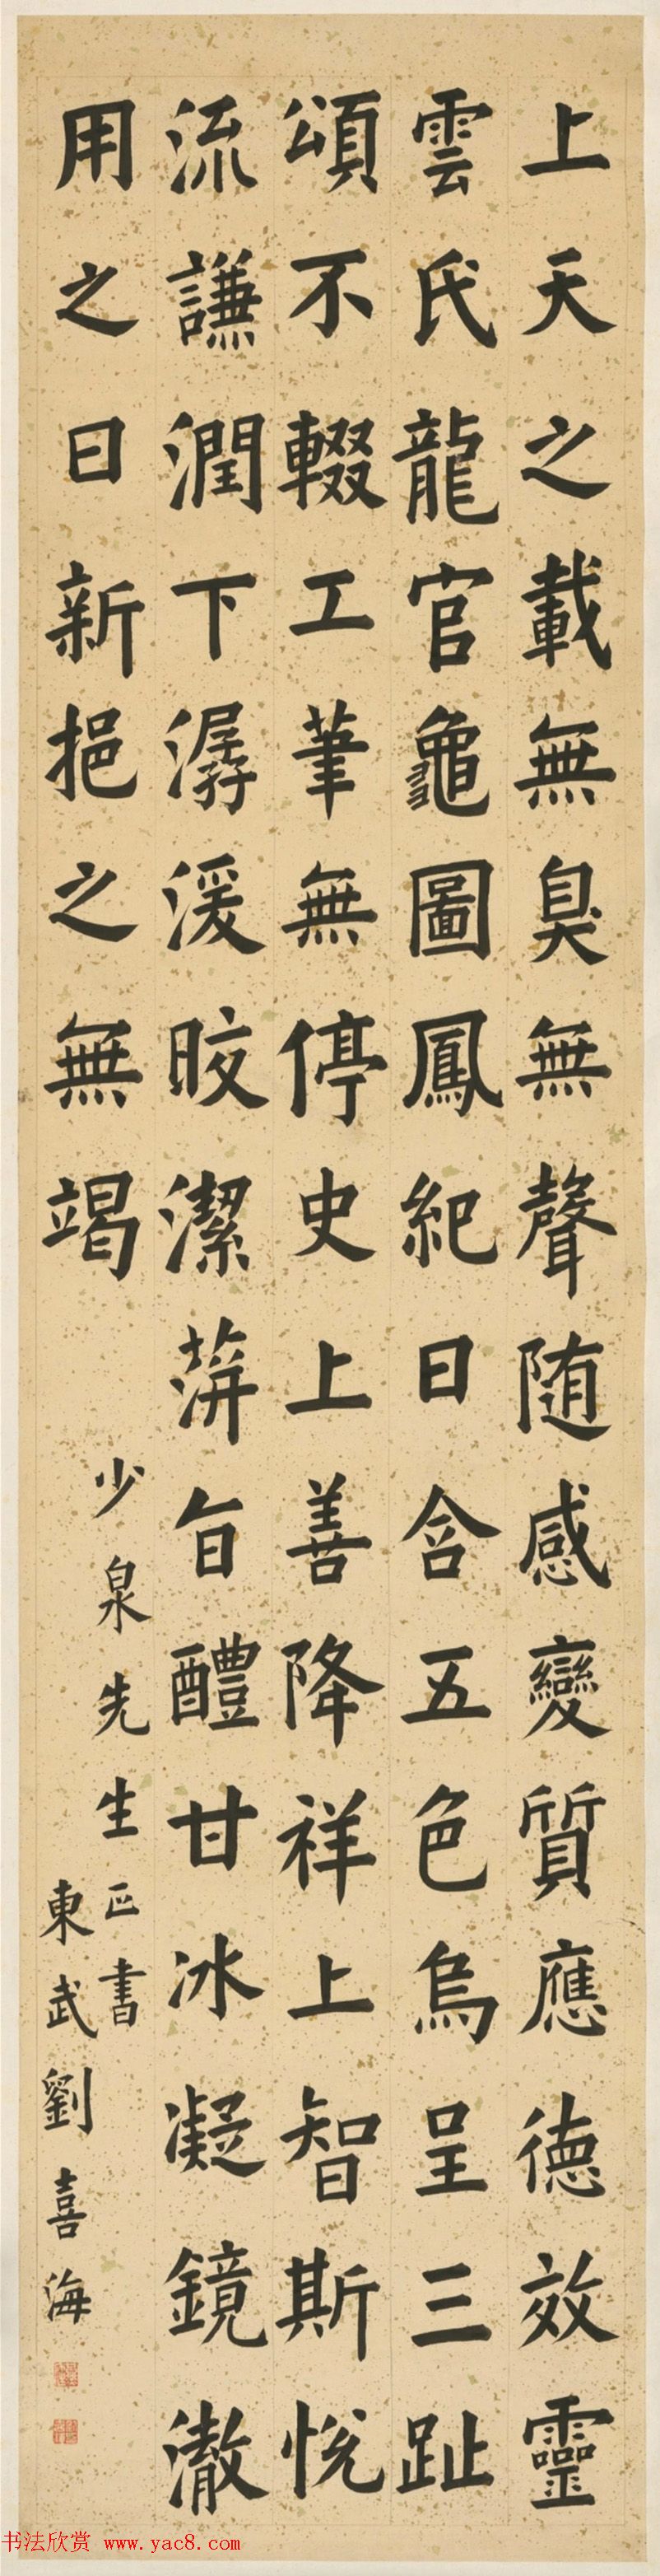 上天之載無臭無聲随感變質應德效靈
雲氏龍官龜圖鳳紀日含五色烏呈三趾
頌不輟工筆無停史上善降祥上智斯悅
流謙潤下潺湲晈潔蓱旨醴甘冰凝鏡澈
用之日新挹之無竭
少泉先生正書
東武劉喜海
书法欣赏 www.yac8.com